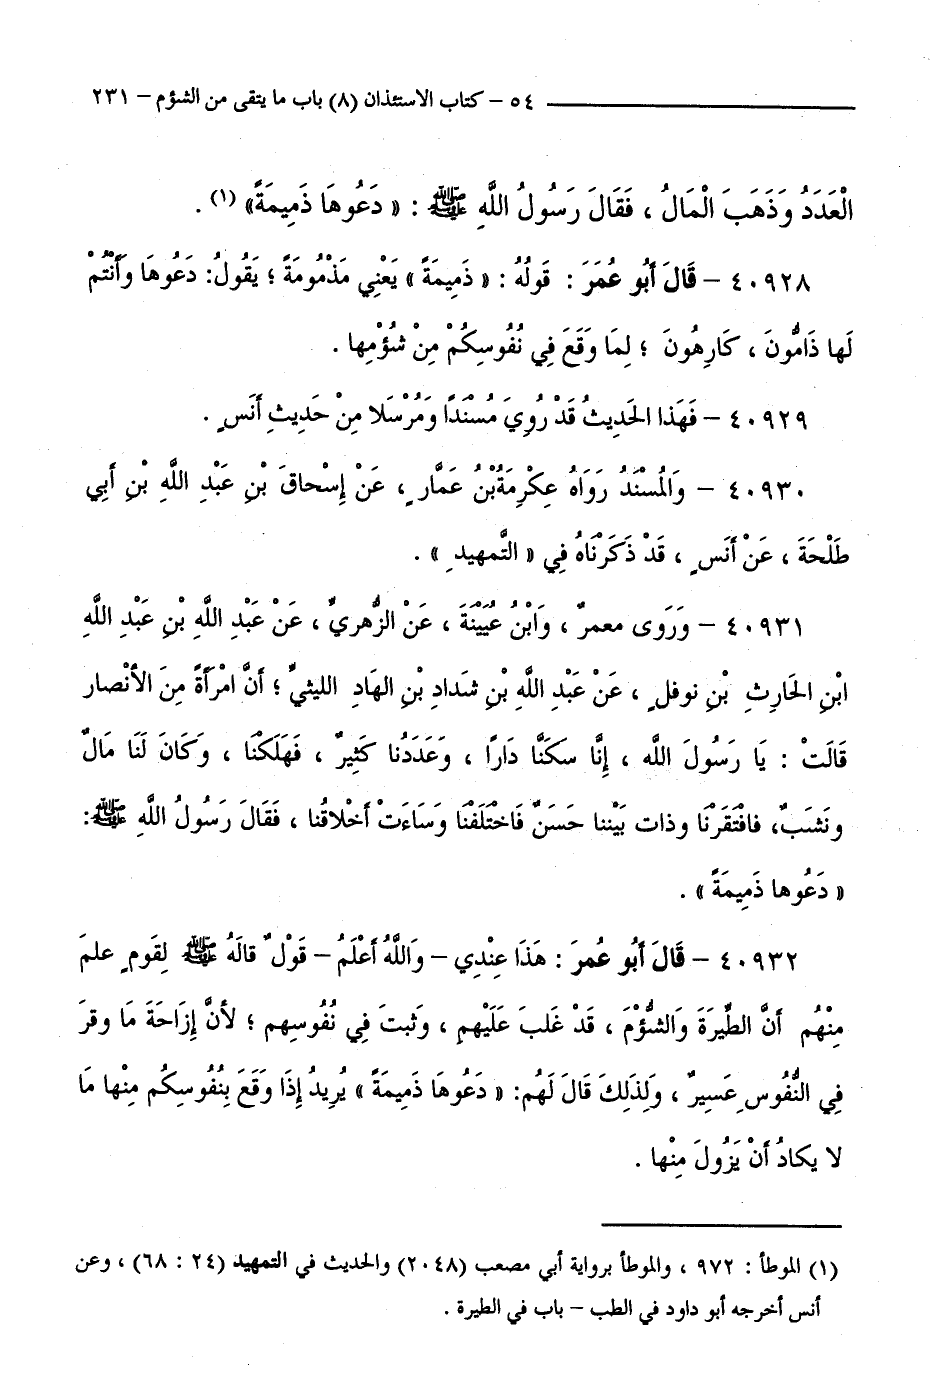 ٥٤ – كتاب الاستئذان (٨) باب ما يتقى من الشؤم – ٢٣١
الْعَدَدُ وَذَهَبَ الْمَالُ ، فَقَالَ رَسُولُ اللَّهِ ﷺ : « دَعُوهَا ذَمِيمَةً» (١) .
٤٠٩٢٨ – قَالَ أَبُو عُمَرَ : قَولُهُ : « ذَمِيمَةً » يَعْنِي مَذْمُومَةً ؛ يَقُولُ: دَعُوهَا وَأَنْتُمْ
لَها ذَامُّونَ ، كَارِهُونَ ؛ لِمَا وَقَعَ فِي نُفُوسِكُمْ مِنْ شُؤْمِها .
٤٠٩٢٩ – فَهَذا الحَدِيثُ قَدْ رُوِيَ مُسْنَدًا وَمُرْسَلا مِنْ حَدِيثِ أَنَسٍ .
٤٠٩٣٠ – وَالُمُسْنَدُ رَوَاهُ عِكْرِمَةُبْنُ عَمَّارٍ ، عَنْ إِسْحاقَ بْنِ عَبْدِ اللَّهِ بْنِ أَبِي
طَلْحَةَ ، عَنْ أَنَسٍ ، قَدْ ذَكَرْنَاهُ فِي « التَّمهِيدِ » .
٤٠٩٣١ – وَرَوَى معمرٌ ، وَابْنُ عُيَيْنَةَ ، عَنْ الزُّهرِيِّ ، عَنْ عَبْدِ اللَّهِ بْنِ عَبْدِ اللَّهِ
ابْنِ الحَارِثِ بْنِ نوفلٍ ، عَنْ عَبْدِ اللَّهِ بْنِ شدادِ بْنِ الهَادِ الليثيِّ ؛ أَنَّ امْرَأَةً مِنَ الأَنْصار
قَالَتْ : يَا رَسُولَ اللَّه ، إِنَّا سَكَنَّا دَارًا ، وَعَدَدُنا كَثِيرٌ ، فَهَلَكْنَا ، وَكَانَ لَنَا مَالٌ
ونَشَبٌ، فافْتَقَرْنَا وذات بَيْننا حَسَنٌ فَاخْتَلَفْنَا وَسَاءَتْ أَخْلاقُنا ، فَقَالَ رَسُولُ اللَّهِ ﷺ:
« دَعُوها ذَمِيمَةً » .
٤٠٩٣٢ – قَالَ أَبُو عُمَرَ : هَذَا عِنْدِي – وَاللَّهُ أَعْلَمُ – قَوْلٌ قالَهُ ﷺ لِقَومٍ علمَ
مِنْهُم أَنَّ الطِّيَرَةَ وَالشُّؤْمَ ، قَدْ غَلبَ عَلَيْهِمِ ، وَثبتَ فِي نُفُوسِهم ؛ لأَنَّ إِزَاحَةَ مَا وقرَ
فِي النُّفُوسِ عَسِيرٌ ، وَلِذَلِكَ قَالَ لَهُم: « دَعُوهَا ذَمِيمَةً » يُرِيدُ إِذَا وَقَعَ بِنُفُوسِكُم مِنْها مَا
لا يكادُ أَنْ يَزُولَ مِنْها .
(١) الموطأ : ٩٧٢ ، والموطأ برواية أبي مصعب (٢٠٤٨) والحديث في التمهيد (٢٤ : ٦٨) ، وعن
أنس أخرجه أبو داود في الطب – باب في الطيرة .